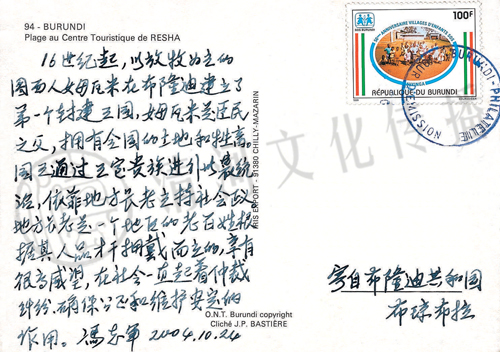 94 - BURUNDI
Plage au Centre Touristique de RESHA
16世纪起,以放牧为主的
图西人姆瓦米在布隆迪建立了
第一个封建王国,姆瓦米是庶民
之父,拥有全国的土地和牲畜。
国王通过王家贵族进行此最统
治,依靠地方长老主持社会政
地方长老是一个地区的老百姓根
据其人品才干拥戴而立的,享有
很高威望,在社会一直起着仲裁
纠纷、确保公正和维护安定的
作用。 2004.10.24
IRIS EXPORT - 91380 CHILLY-MAZARIN
O.N.T. Burundi copyright
Cliché J.P. BASTIÈRE
100F
50ème ANNIVERSAIRE VILLAGES D'ENFANTS SOS
RÉPUBLIQUE DU BURUNDI
BURUNDI-PHILATELIE
寄自布隆迪共和国
布琼布拉
文化传播